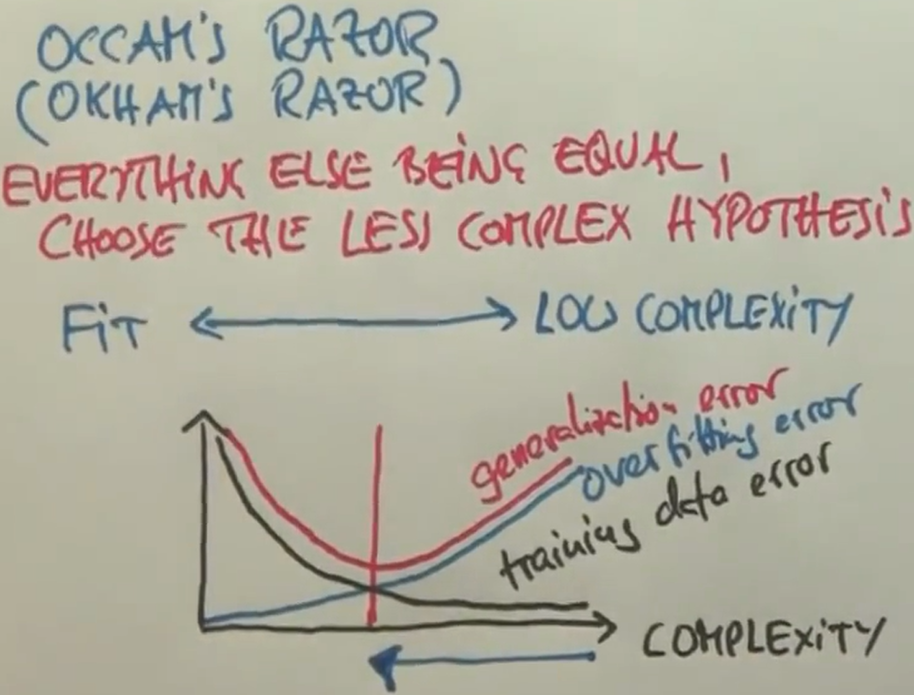 OCCAM'S RAZOR
(OKHAM'S RAZOR)
EVERYTHING ELSE BEING EQUAL,
CHOOSE THE LESS COMPLEX HYPOTHESIS
FiT LOW COMPLEXiTY
generalization error
overfitting error
training data error
COMPLEXiTY